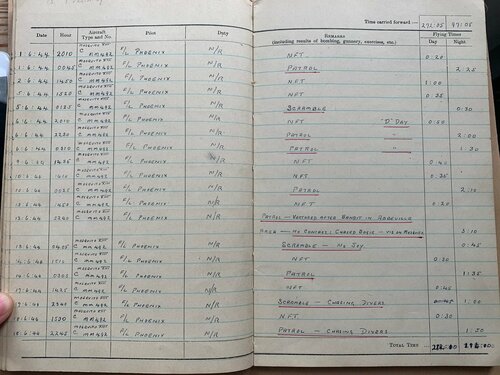 Time carried forward — 272:05 97:05
Date Hour Aircraft Type and No. Pilot Duty Remarks (including results of bombing, gunnery, exercises, etc.) Flying Times
Day Night
1.6.44 2010 Mosquito XIII C MM492 F/L Phoenix N/R NFT 0:20
1.6.44 0045 Mosquito XIII C MM492 F/L Phoenix N/R Patrol 2:25
2.6.44 1450 Mosquito XIII C MM492 F/L Phoenix N/R NFT 1:00
5.6.44 1520 Mosquito XIII C MM492 F/L Phoenix N/R NFT 0:35
5.6.44 0125 Mosquito XIII C MM492 F/L Phoenix N/R Scramble 0:30
6.6.44 2010 Mosquito XIII C MM492 F/L Phoenix N/R NFT "D" Day 0:50
6.6.44 2230 Mosquito XIII C MM492 F/L Phoenix N/R Patrol " 2:00
6.6.44 0310 Mosquito XIII C MM492 F/L Phoenix N/R Patrol " 1:30
9.6.44 1425 Mosquito XIII C MM492 F/L Phoenix N/R NFT
10.6.44 1410 Mosquito XIII C MM492 F/L Phoenix N/R NFT
10.6.44 0025 Mosquito XIII C MM492 F/L Phoenix N/R Patrol 2:10
6.44 Mosquito XIII C MM492 F/L Phoenix N/R NFT
13.6.44 Mosquito XIII C MM492 F/L Phoenix N/R Patrol – after Bandit in Abbeville
Area – No Contact; Chased Bogie – 3:10
13.6.44 0405 Mosquito XIII C MM492 F/L Phoenix N/R Scramble – No Joy 0:45
14.6.44 1510 Mosquito XIII C MM492 F/L Phoenix N/R NFT 0:30
14.6.44 Mosquito XIII C MM492 F/L Phoenix N/R Patrol 1:35
17.6.44 Mosquito XIII C MM492 F/L Phoenix N/R NFT 0:45
17.6.44 2340 Mosquito XIII C MM492 F/L Phoenix N/R Scramble – Chasing Divers 1:00
18.6.44 Mosquito XIII C MM492 F/L Phoenix N/R NFT 0:30
18.6.44 2245 Mosquito XIII C MM492 F/L Phoenix N/R Patrol – Chasing Divers 1:50
Total Time